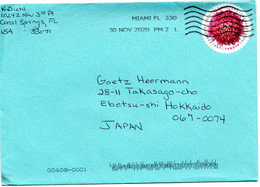 K Diehl
10242 NW 3rd Pl
Coral Springs, FL
USA 33071
MIAMI FL 330
30 NOV 2020 PM 2 L
Goetz Heermann
28-11 Takasago-cho
Ebetsu-shi Hokkaido
067-0074
JAPAN
00409-0001